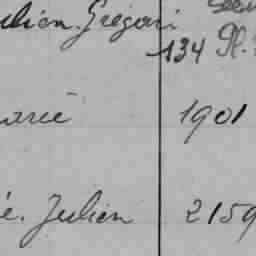 ulien. Grégori
134 Pl.
arie 1901
é. Julien 2159